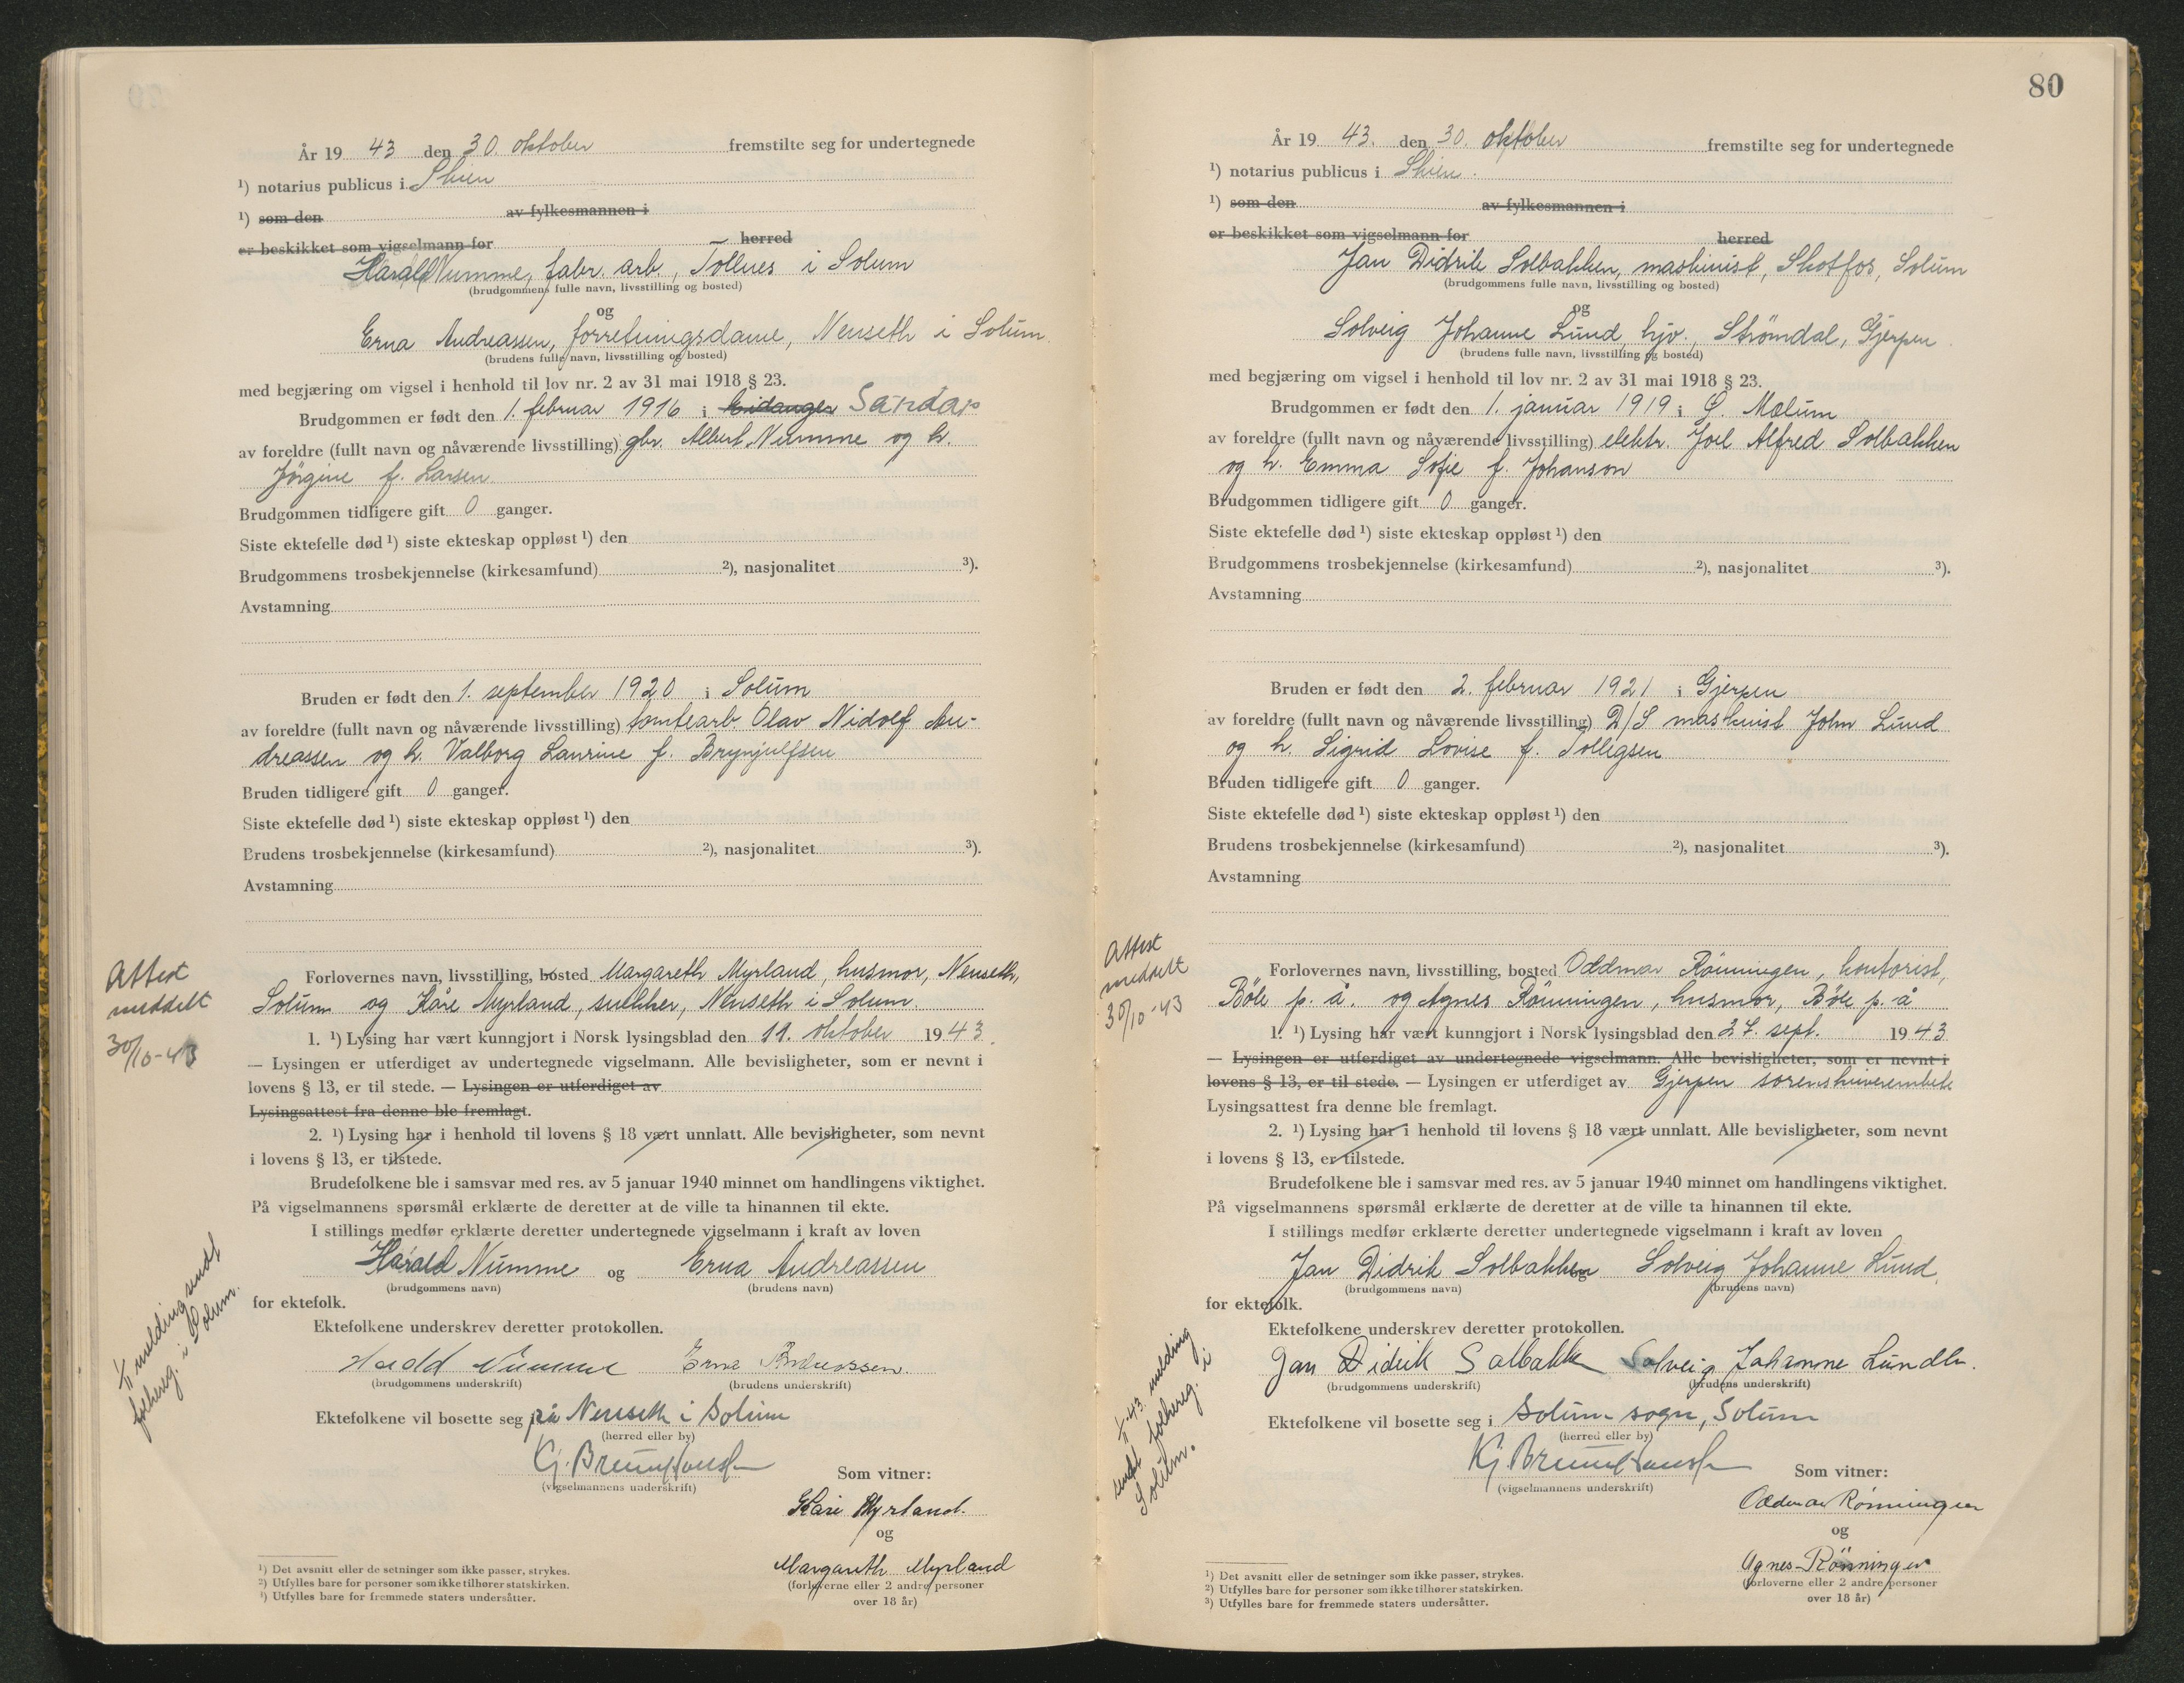 År 19 43 den 30. oktober fremstilte seg for undertegnede
¹) notarius publicus i Skien
¹) som den av fylkesmannen i
er beskikket som vigselmann for herred
Harald Numme, fabr. arb., Tollnes i Solum
(brudgommens fulle navn, livsstilling og bosted)
og
Erna Andreassen, forretningsdame, Nenseth i Solum.
(brudens fulle navn, livsstilling og bosted)
med begjæring om vigsel i henhold til lov nr. 2 av 31 mai 1918 § 23.
Brudgommen er født den 1. februar 1916 i Eidanger Sandar
av foreldre (fullt navn og nåværende livsstilling) gbr. Albert Numme og h.
Jörgine f. Larsen.
Brudgommen tidligere gift 0 ganger.
Siste ektefelle død ¹) siste ekteskap oppløst ¹) den
Brudgommens trosbekjennelse (kirkesamfund) ²), nasjonalitet ³).
Avstamning
Bruden er født den 1. september 1920 i Solum
av foreldre (fullt navn og nåværende livsstilling) tomtearb. Olav Nidolf An-
dreassen og h. Valborg Laurine f. Brynjulfsen
Bruden tidligere gift 0 ganger.
Siste ektefelle død ¹) siste ekteskap oppløst ¹) den
Brudens trosbekjennelse (kirkesamfund) ²), nasjonalitet ³).
Avstamning
Attest
meddelt
30/10-43
Forlovernes navn, livsstilling, bosted Margareth Myrland, husmor, Nenseth,
Solum og Kåre Myrland, snekker, Nenseth i Solum.
1. ¹) Lysing har vært kunngjort i Norsk lysingsblad den 11. oktober 1943.
— Lysingen er utferdiget av undertegnede vigselmann. Alle bevisligheter, som er nevnt i
lovens § 13, er til stede. — Lysingen er utferdiget av
Lysingsattest fra denne ble fremlagt.
2. ¹) Lysing har i henhold til lovens § 18 vært unnlatt. Alle bevisligheter, som nevnt
i lovens § 13, er tilstede.
Brudefolkene ble i samsvar med res. av 5 januar 1940 minnet om handlingens viktighet.
På vigselmannens spørsmål erklærte de deretter at de ville ta hinannen til ekte.
I stillings medfør erklærte deretter undertegnede vigselmann i kraft av loven
Harald Numme og Erna Andreassen
(brudgommens navn) (brudens navn)
for ektefolk.
Ektefolkene underskrev deretter protokollen.
Harald Numme Erna Andreassen.
(brudgommens underskrift) (brudens underskrift)
1/11 melding sendt
folkereg. i Solum.
Ektefolkene vil bosette seg på Nenseth i Solum
(herred eller by)
(vigselmannens underskrift)
Som vitner:
Kåre Myrland.
og
Margareth Myrland
(forloverne eller 2 andre personer
over 18 år)
¹) Det avsnitt eller de setninger som ikke passer, strykes.
²) Utfylles bare for personer som ikke tilhører statskirken.
³) Utfylles bare for fremmede staters undersåtter.
80
År 19 43. den 30. oktober fremstilte seg for undertegnede
¹) notarius publicus i Skien.
¹) som den av fylkesmannen i
er beskikket som vigselmann for herred
Jan Didrik Solbakken, maskinist, Skotfos, Solum
(brudgommens fulle navn, livsstilling og bosted)
og
Solveig Johanne Lund, hjv., Strömdal, Gjerpen.
(brudens fulle navn, livsstilling og bosted)
med begjæring om vigsel i henhold til lov nr. 2 av 31 mai 1918 § 23.
Brudgommen er født den 1. januar 1919 i Ø. Mælum
av foreldre (fullt navn og nåværende livsstilling) elektr. Joel Alfred Solbakken
og h. Emma Sofie f. Johanson
Brudgommen tidligere gift 0 ganger.
Siste ektefelle død ¹) siste ekteskap oppløst ¹) den
Brudgommens trosbekjennelse (kirkesamfund) ²), nasjonalitet ³).
Avstamning
Bruden er født den 2. februar 1921 i Gjerpen
av foreldre (fullt navn og nåværende livsstilling) D/S maskinist John Lund
og h. Sigrid Lovise f. Tollegsen
Bruden tidligere gift 0 ganger.
Siste ektefelle død ¹) siste ekteskap oppløst ¹) den
Brudens trosbekjennelse (kirkesamfund) ²), nasjonalitet ³).
Avstamning
Attest
meddelt
30/10-43
Forlovernes navn, livsstilling, bosted Oddmar Rönningen, kontorist,
Böle p. å. og Agnes Rönningen, husmor, Böle p. å
1. ¹) Lysing har vært kunngjort i Norsk lysingsblad den 27. sept. 1943
— Lysingen er utferdiget av undertegnede vigselmann. Alle bevisligheter, som er nevnt i
lovens § 13, er til stede. — Lysingen er utferdiget av Gjerpen sorenskriverembete
Lysingsattest fra denne ble fremlagt.
2. ¹) Lysing har i henhold til lovens § 18 vært unnlatt. Alle bevisligheter, som nevnt
i lovens § 13, er tilstede.
Brudefolkene ble i samsvar med res. av 5 januar 1940 minnet om handlingens viktighet.
På vigselmannens spørsmål erklærte de deretter at de ville ta hinannen til ekte.
I stillings medfør erklærte deretter undertegnede vigselmann i kraft av loven
Jan Didrik Solbakken Solveig Johanne Lund,
(brudgommens navn) (brudens navn)
for ektefolk.
Ektefolkene underskrev deretter protokollen.
Jan Didrik Solbakk Solveig Johanne Lund
(brudgommens underskrift) (brudens underskrift)
1/11-43. melding
sendt folkereg. i
Solum.
Ektefolkene vil bosette seg i Solum sogn, Solum
(herred eller by)
(vigselmannens underskrift)
Som vitner:
Oddmar Rönningen
og
Agnes Rönningen
(forloverne eller 2 andre personer
over 18 år)
¹) Det avsnitt eller de setninger som ikke passer, strykes.
²) Utfylles bare for personer som ikke tilhører statskirken.
³) Utfylles bare for fremmede staters undersåtter.